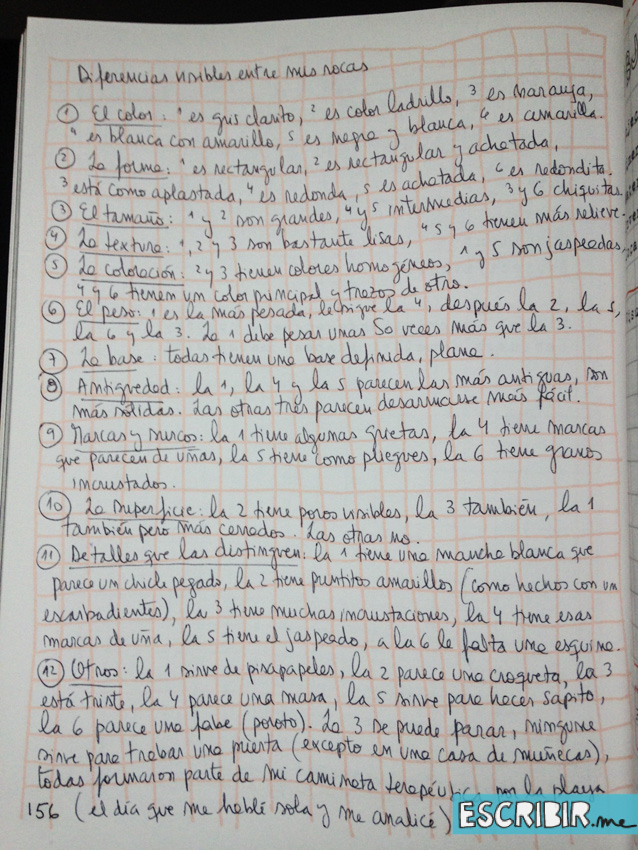 Diferencias visibles entre mis rocas
① El color: ¹ es gris clarito, ² es color ladrillo, ³ es naranja,
⁴ es blanca con amarillo, ⁵ es negra y blanca, ⁶ es amarilla.
② La forma: ¹ es rectangular, ² es rectangular y achatada,
³ está como aplastada, ⁴ es redonda, ⁵ es achatada, ⁶ es redondita.
③ El tamaño: ¹ y ² son grandes, ⁴ y ⁵ intermedias, 3 y 6 chiquitas.
④ La textura: 1, 2 y 3 son bastante lisas, ⁴ 5 y 6 tienen más relieve.
⑤ La coloración: ² y 3 tienen colores homogéneos, 1 y 5 son jaspeadas,
4 y 6 tienen un color principal y trazos de otro.
⑥ El peso: 1 es la más pesada, le sigue la 4, después la 2, la 5,
la 6 y la 3. La 1 debe pesar unas 50 veces más que la 3.
⑦ La base: todas tienen una base definida, plana.
⑧ Antigüedad: la 1, la 4 y la 5 parecen las más antiguas, son
más sólidas. Las otras tres parecen desarmarse más fácil.
⑨ Marcas y surcos: la 1 tiene algunas grietas, la 4 tiene marcas
que parecen de uñas, la 5 tiene como pliegues, la 6 tiene granos
incrustados.
⑩ La superficie: la 2 tiene poros visibles, la 3 también, la 1
también pero más cerrados. Las otras no.
⑪ Detalles que las distinguen: la 1 tiene una mancha blanca que
parece un chicle pegado, la 2 tiene puntitos amarillos (como hechos con un
escarbadientes), la 3 tiene muchas incrustaciones, la 4 tiene esas
marcas de uña, la 5 tiene el jaspeado, a la 6 le falta una esquina.
⑫ Otros: la 1 sirve de pisapapeles, la 2 parece una croqueta, la 3
está triste, la 4 parece una masa, la 5 sirve para hacer sapito,
la 6 parece una faba (poroto). La 3 se puede parar, ninguna
sirve para trabar una puerta (excepto en una casa de muñecas),
todas formaron parte de mi caminata terapéutica por la playa
156 (el día que me hablé sola y me analicé)
ESCRIBIR.me